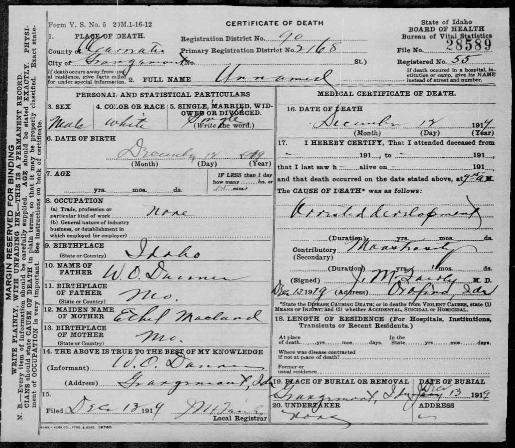 Form V. S. No. 5 20M.1-16-12
CERTIFICATE OF DEATH
State of Idaho
BOARD OF HEALTH
Bureau of Vital Statistics
1. PLACE OF DEATH.
Registration District No. 90
File No. 28589
County of
Primary Registration District No. 2168
Registered No. 55
City of
St.)
If death occurred away from usual residence, give facts called for under special information.
2. FULL NAME Unnamed
If death occurred in a hospital, institution or camp, give its NAME instead of street and number.
PERSONAL AND STATISTICAL PARTICULARS
3. SEX
4. COLOR OR RACE
5. SINGLE, MARRIED, WIDOWED OR DIVORCED.
(Write the word.)
Male
White
Single
6. DATE OF BIRTH
December 12 1919
(Month) (Day) (Year)
7. AGE
If LESS than 1 day
how many hrs. or
yrs. mos. ds.
8. OCCUPATION
(a) Trade, profession or particular kind of work
none
(b) General nature of industry, business, or establishment in which employed (or employer)
9. BIRTHPLACE
(State or Country)
Idaho
10. NAME OF FATHER
W.O.
11. BIRTHPLACE OF FATHER
(State or Country)
Mo.
12. MAIDEN NAME OF MOTHER
Ethel
13. BIRTHPLACE OF MOTHER
(State or Country)
Mo.
14. THE ABOVE IS TRUE TO THE BEST OF MY KNOWLEDGE
(Informant) W.O.
(Address)
15.
Filed Dec 13 1919
Local Registrar
MEDICAL CERTIFICATE OF DEATH.
16. DATE OF DEATH
December 12 1919
(Month) (Day) (Year)
17. I HEREBY CERTIFY, That I attended deceased from
, 191 , to , 191 ,
that I last saw h alive on , 191 ,
and that death occurred on the date stated above, at
The CAUSE OF DEATH* was as follows:
Arrested development
(Duration) yrs. mos. ds.
Contributory
(Secondary)
(Duration) yrs. mos. ds.
(Signed) M. D.
Dec 12 1919 (Address)
*State the DISEASE CAUSING DEATH; or in deaths from VIOLENT CAUSES, state (1) MEANS OF INJURY; and (2) whether ACCIDENTAL, SUICIDAL or HOMICIDAL.
18. LENGTH OF RESIDENCE (For Hospitals, Institutions, Transients or Recent Residents.)
At place of death yrs. mos. ds. In the State yrs. mos. ds.
Where was disease contracted if not at place of death?
Former or usual residence
19. PLACE OF BURIAL OR REMOVAL
DATE OF BURIAL
Dec 13 1919
20. UNDERTAKER
ADDRESS
none
MARGIN RESERVED FOR BINDING
WRITE PLAINLY, WITH UNFADING INK—THIS IS A PERMANENT RECORD.
N. B.—Every item of information should be carefully supplied. AGE should be stated EXACTLY. PHYSICIANS should state CAUSE OF DEATH in plain terms, so that it may be properly classified. Exact statement of OCCUPATION is very important. See instructions on back of certificate.